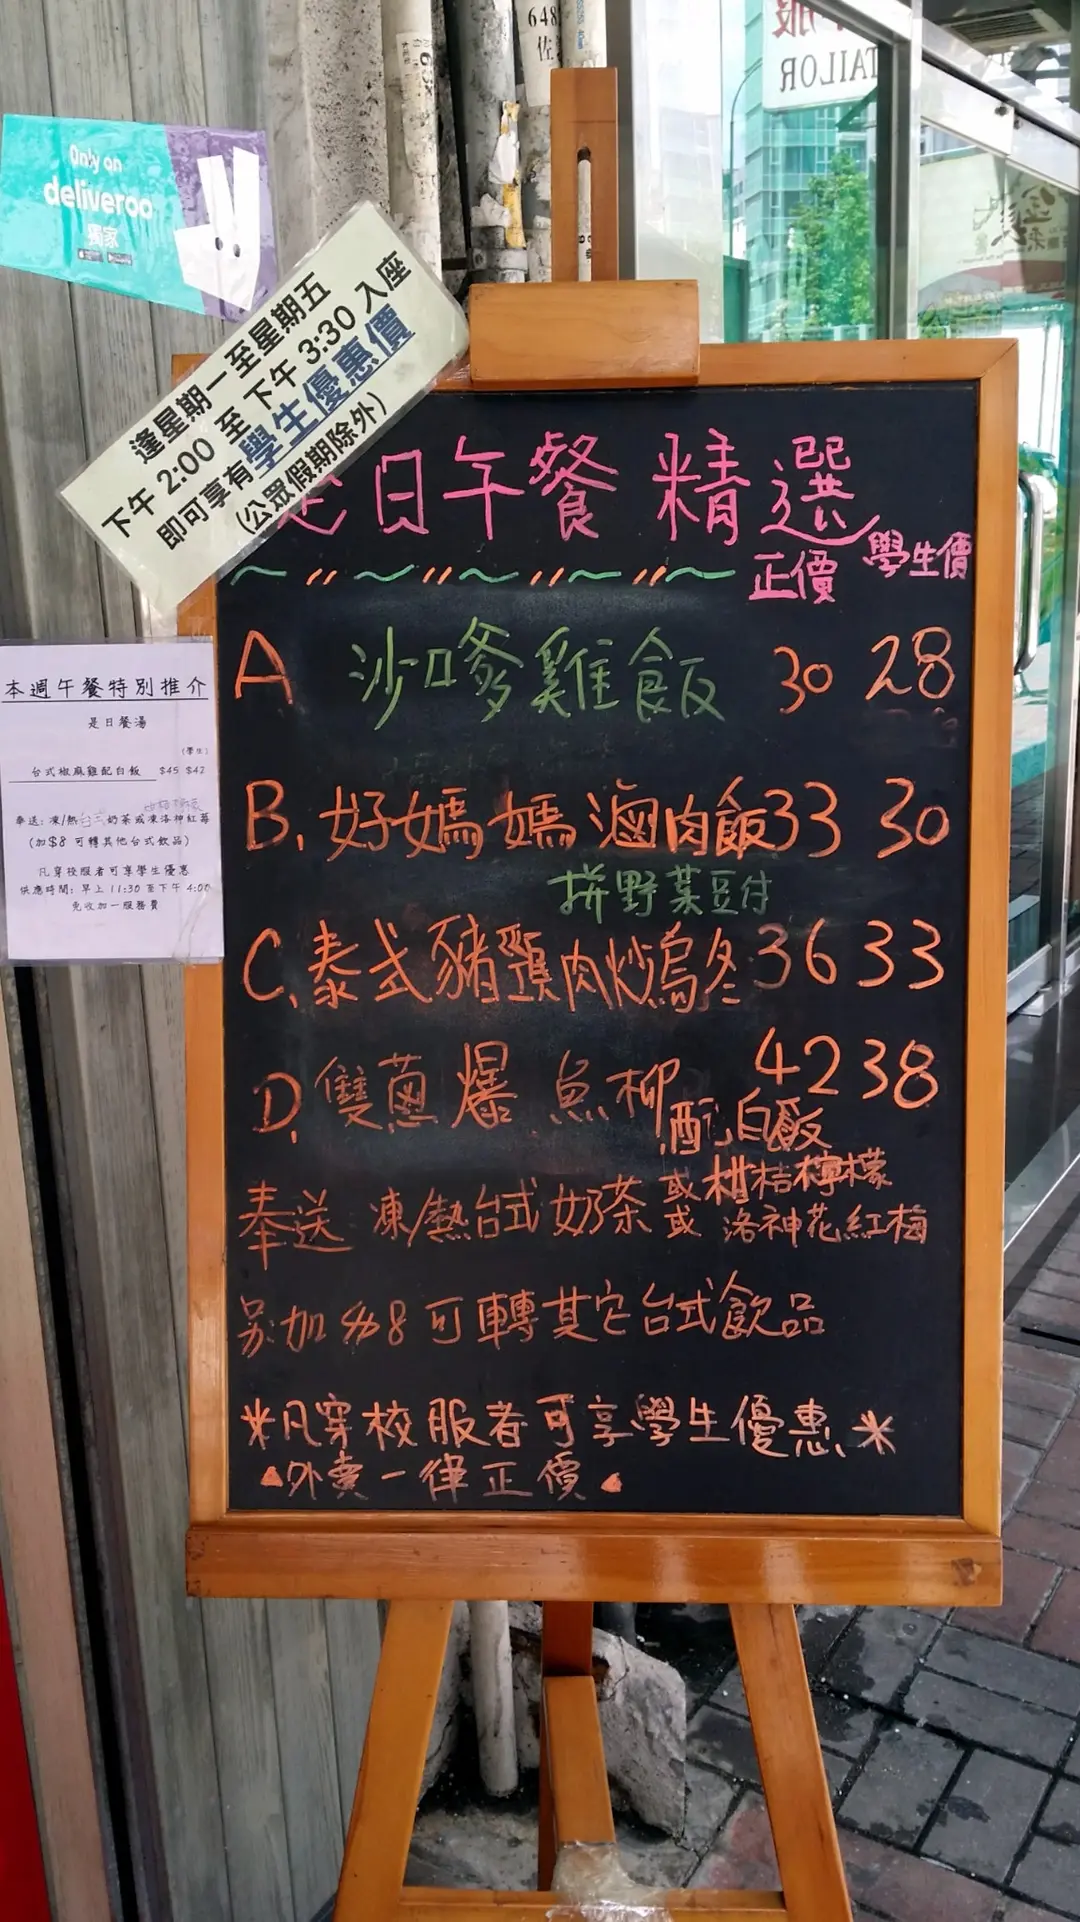 648
佐
TAILOR
Only on
deliveroo
獨家
逢星期一至星期五
下午 2:00 至 下午 3:30 入座
即可享有學生優惠價
(公眾假期除外)
是日午餐 精選
正價 學生價
A 沙嗲雞飯 30 28
B. 好媽媽滷肉飯 33 30
拼野菜豆付
C. 泰式豬頸肉炒烏冬 36 33
D. 雙蔥爆魚柳 42 38
配白飯
奉送 凍/熱台式奶茶 或柑桔檸檬
或 洛神花紅梅
另加 $8 可轉其它台式飲品
*凡穿校服者可享學生優惠*
外賣一律正價
本週午餐特別推介
是日餐湯
(學生)
台式椒麻雞配白飯 $45 $42
奉送: 凍/熱台式奶茶或凍洛神紅莓
(加$8 可轉其他台式飲品)
凡穿校服者可享學生優惠
供應時間: 早上 11:30 至下午 4:00
免收加一服務費